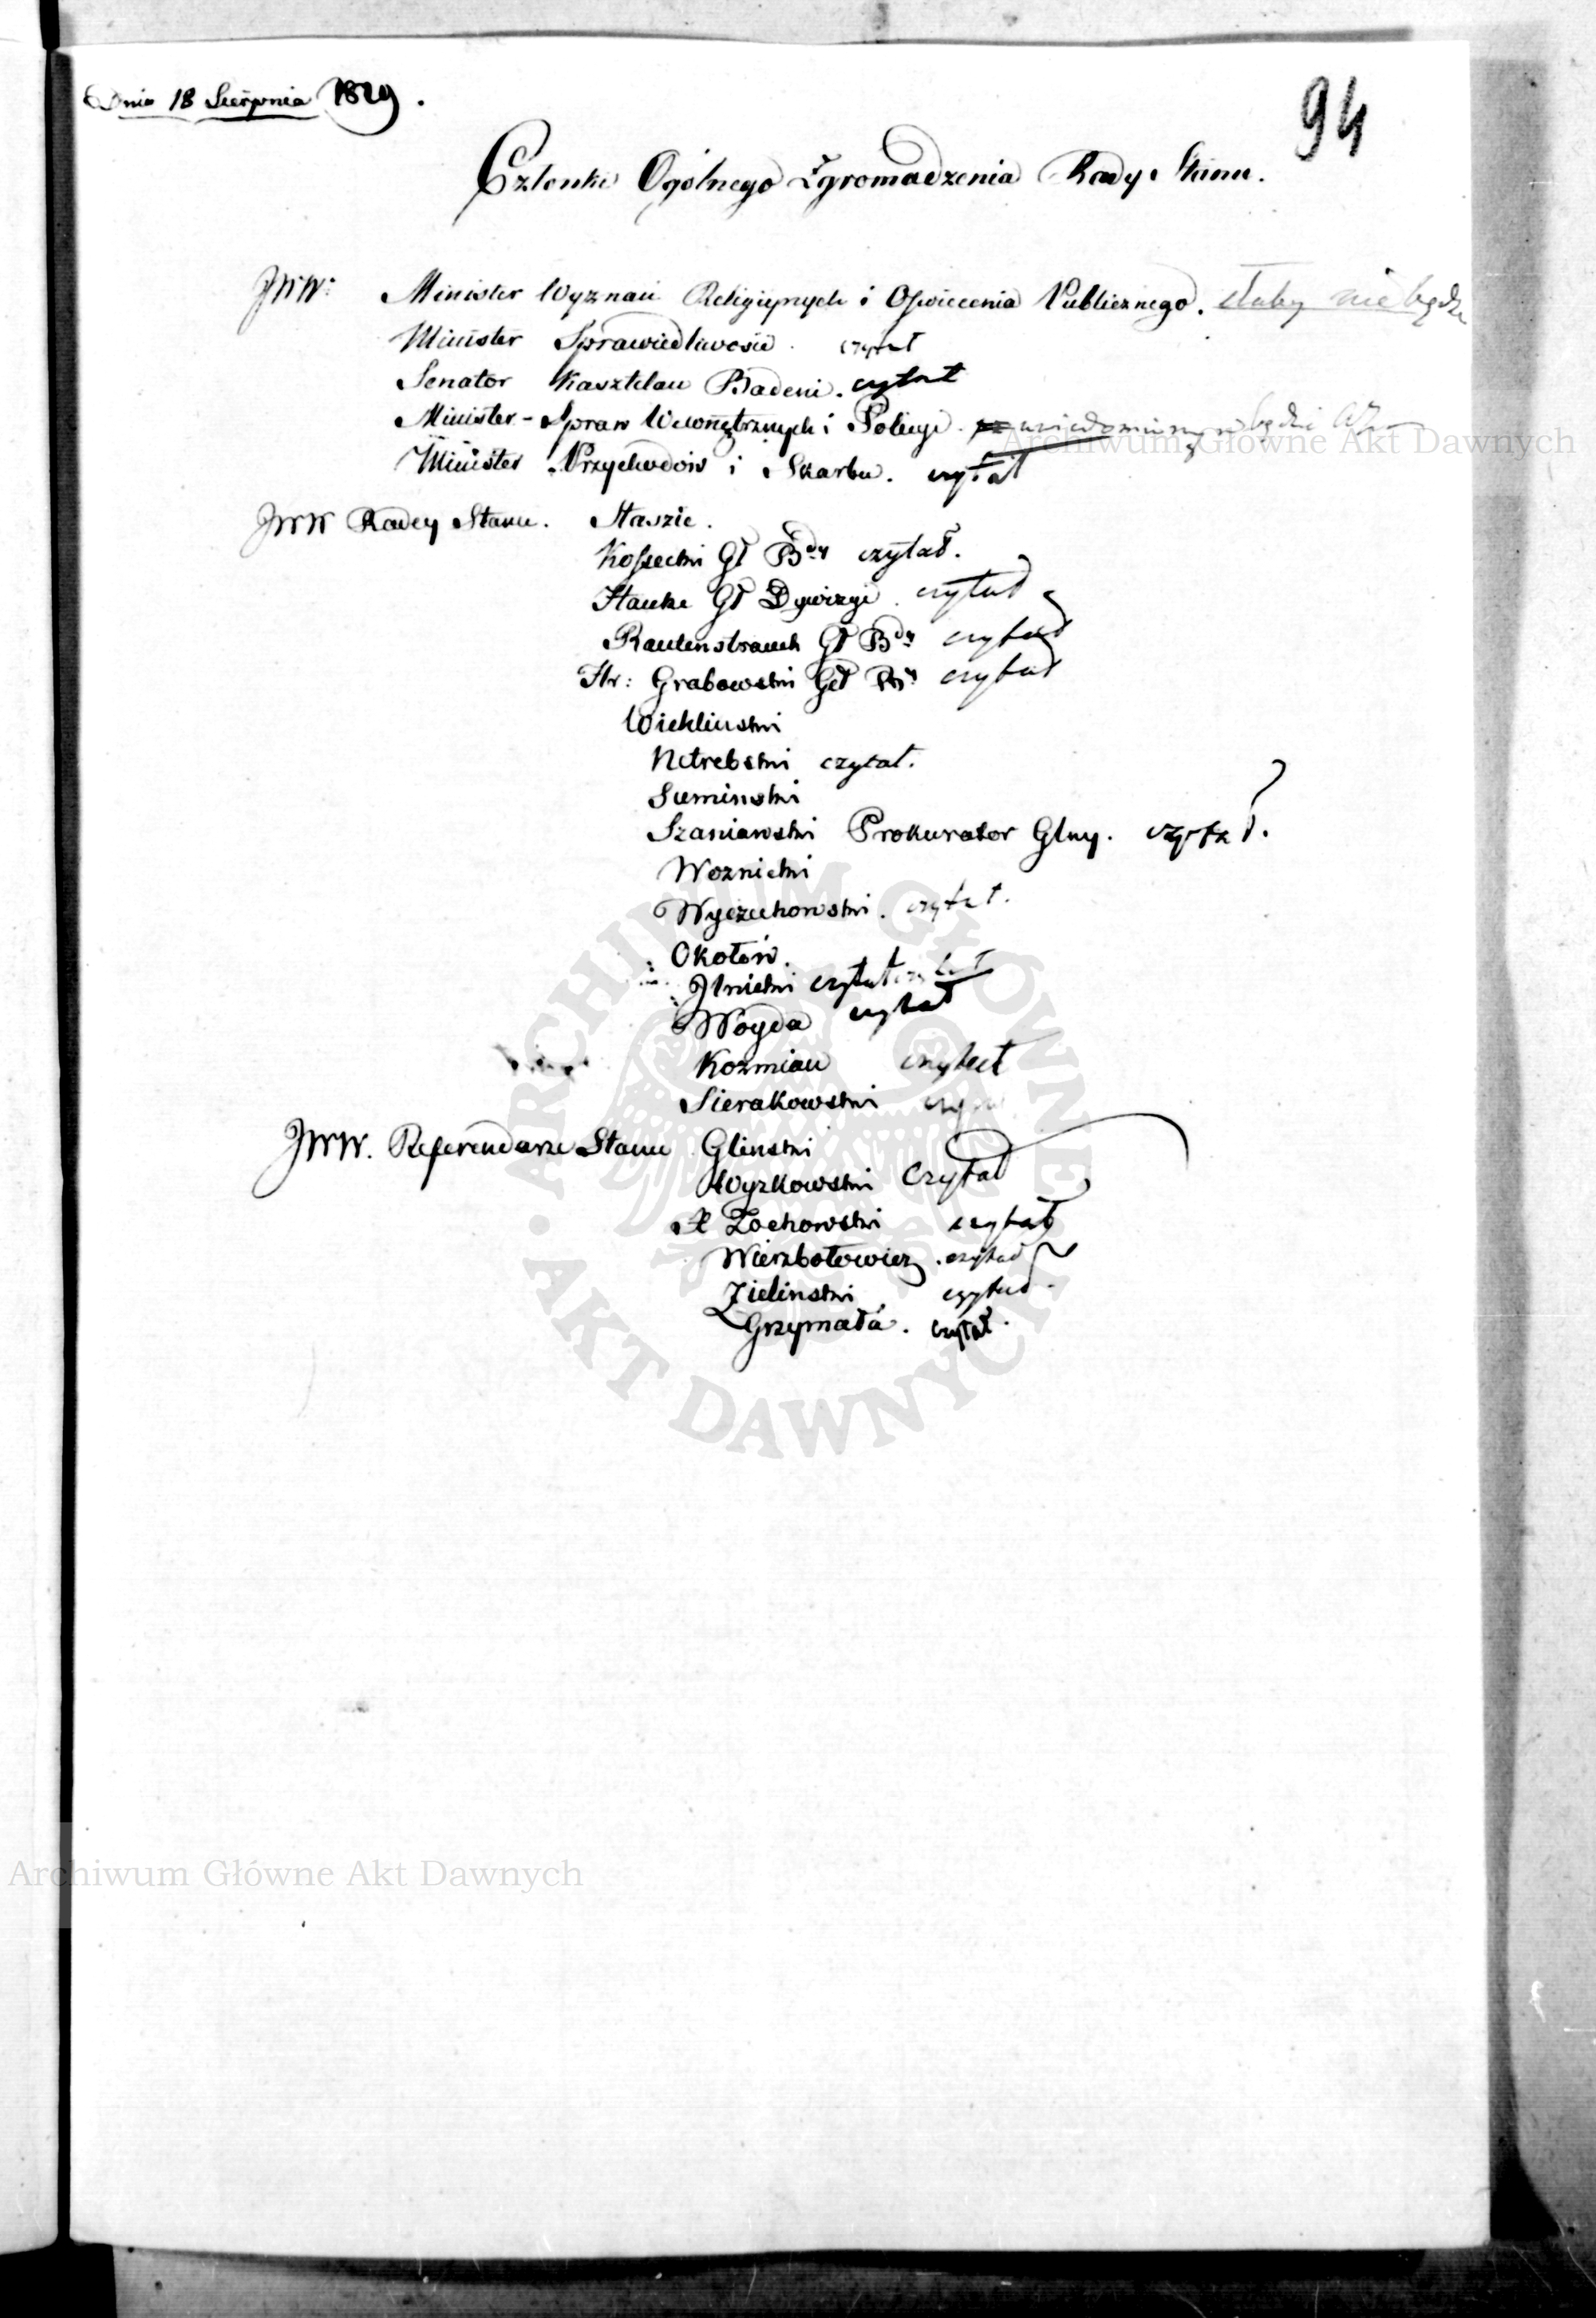 Dnia 18 Sierpnia 1829.
94
Członki Ogólnego Zgromadzenia Rady Stanu.
JWW: Minister Wyznań Religiynych i Oświecenia Publicznego. słaby nie będzie
Minister Sprawiedliwości. czytał
Senator Kasztelan Badeni. czytał
Minister Spraw Wewnętrznych i Policyi. uwiadomiony będzie
Minister Przychodów i Skarbu. czytał
JWW Radcy Stanu. Staszic.
Kossecki Gł Bdy czytał.
Hauke Gł Dywizyi. czytał
Rautenstrauch Gł Bdy czytał
Hr: Grabowski Gł Bdy czytał
Wichliński
Netrebski czytał.
Sumiński
Szaniawski Prokurator Glny. czytał.
Woznicki
Wyczechowski. czytał.
Okołów.
Ilnicki czytał czytał
Woyda czytał
Kozmian czytał
Sierakowski
JWW. Referendarze Stanu Gliński
Wyzkowski Czytał
X Żochowski czytał
Wierzbołowicz. czytał
Zieliński czytał
Grzymała. czytał.
ARCHIWUM GŁÓWNE AKT DAWNYCH
Archiwum Główne Akt Dawnych
Archiwum Główne Akt Dawnych